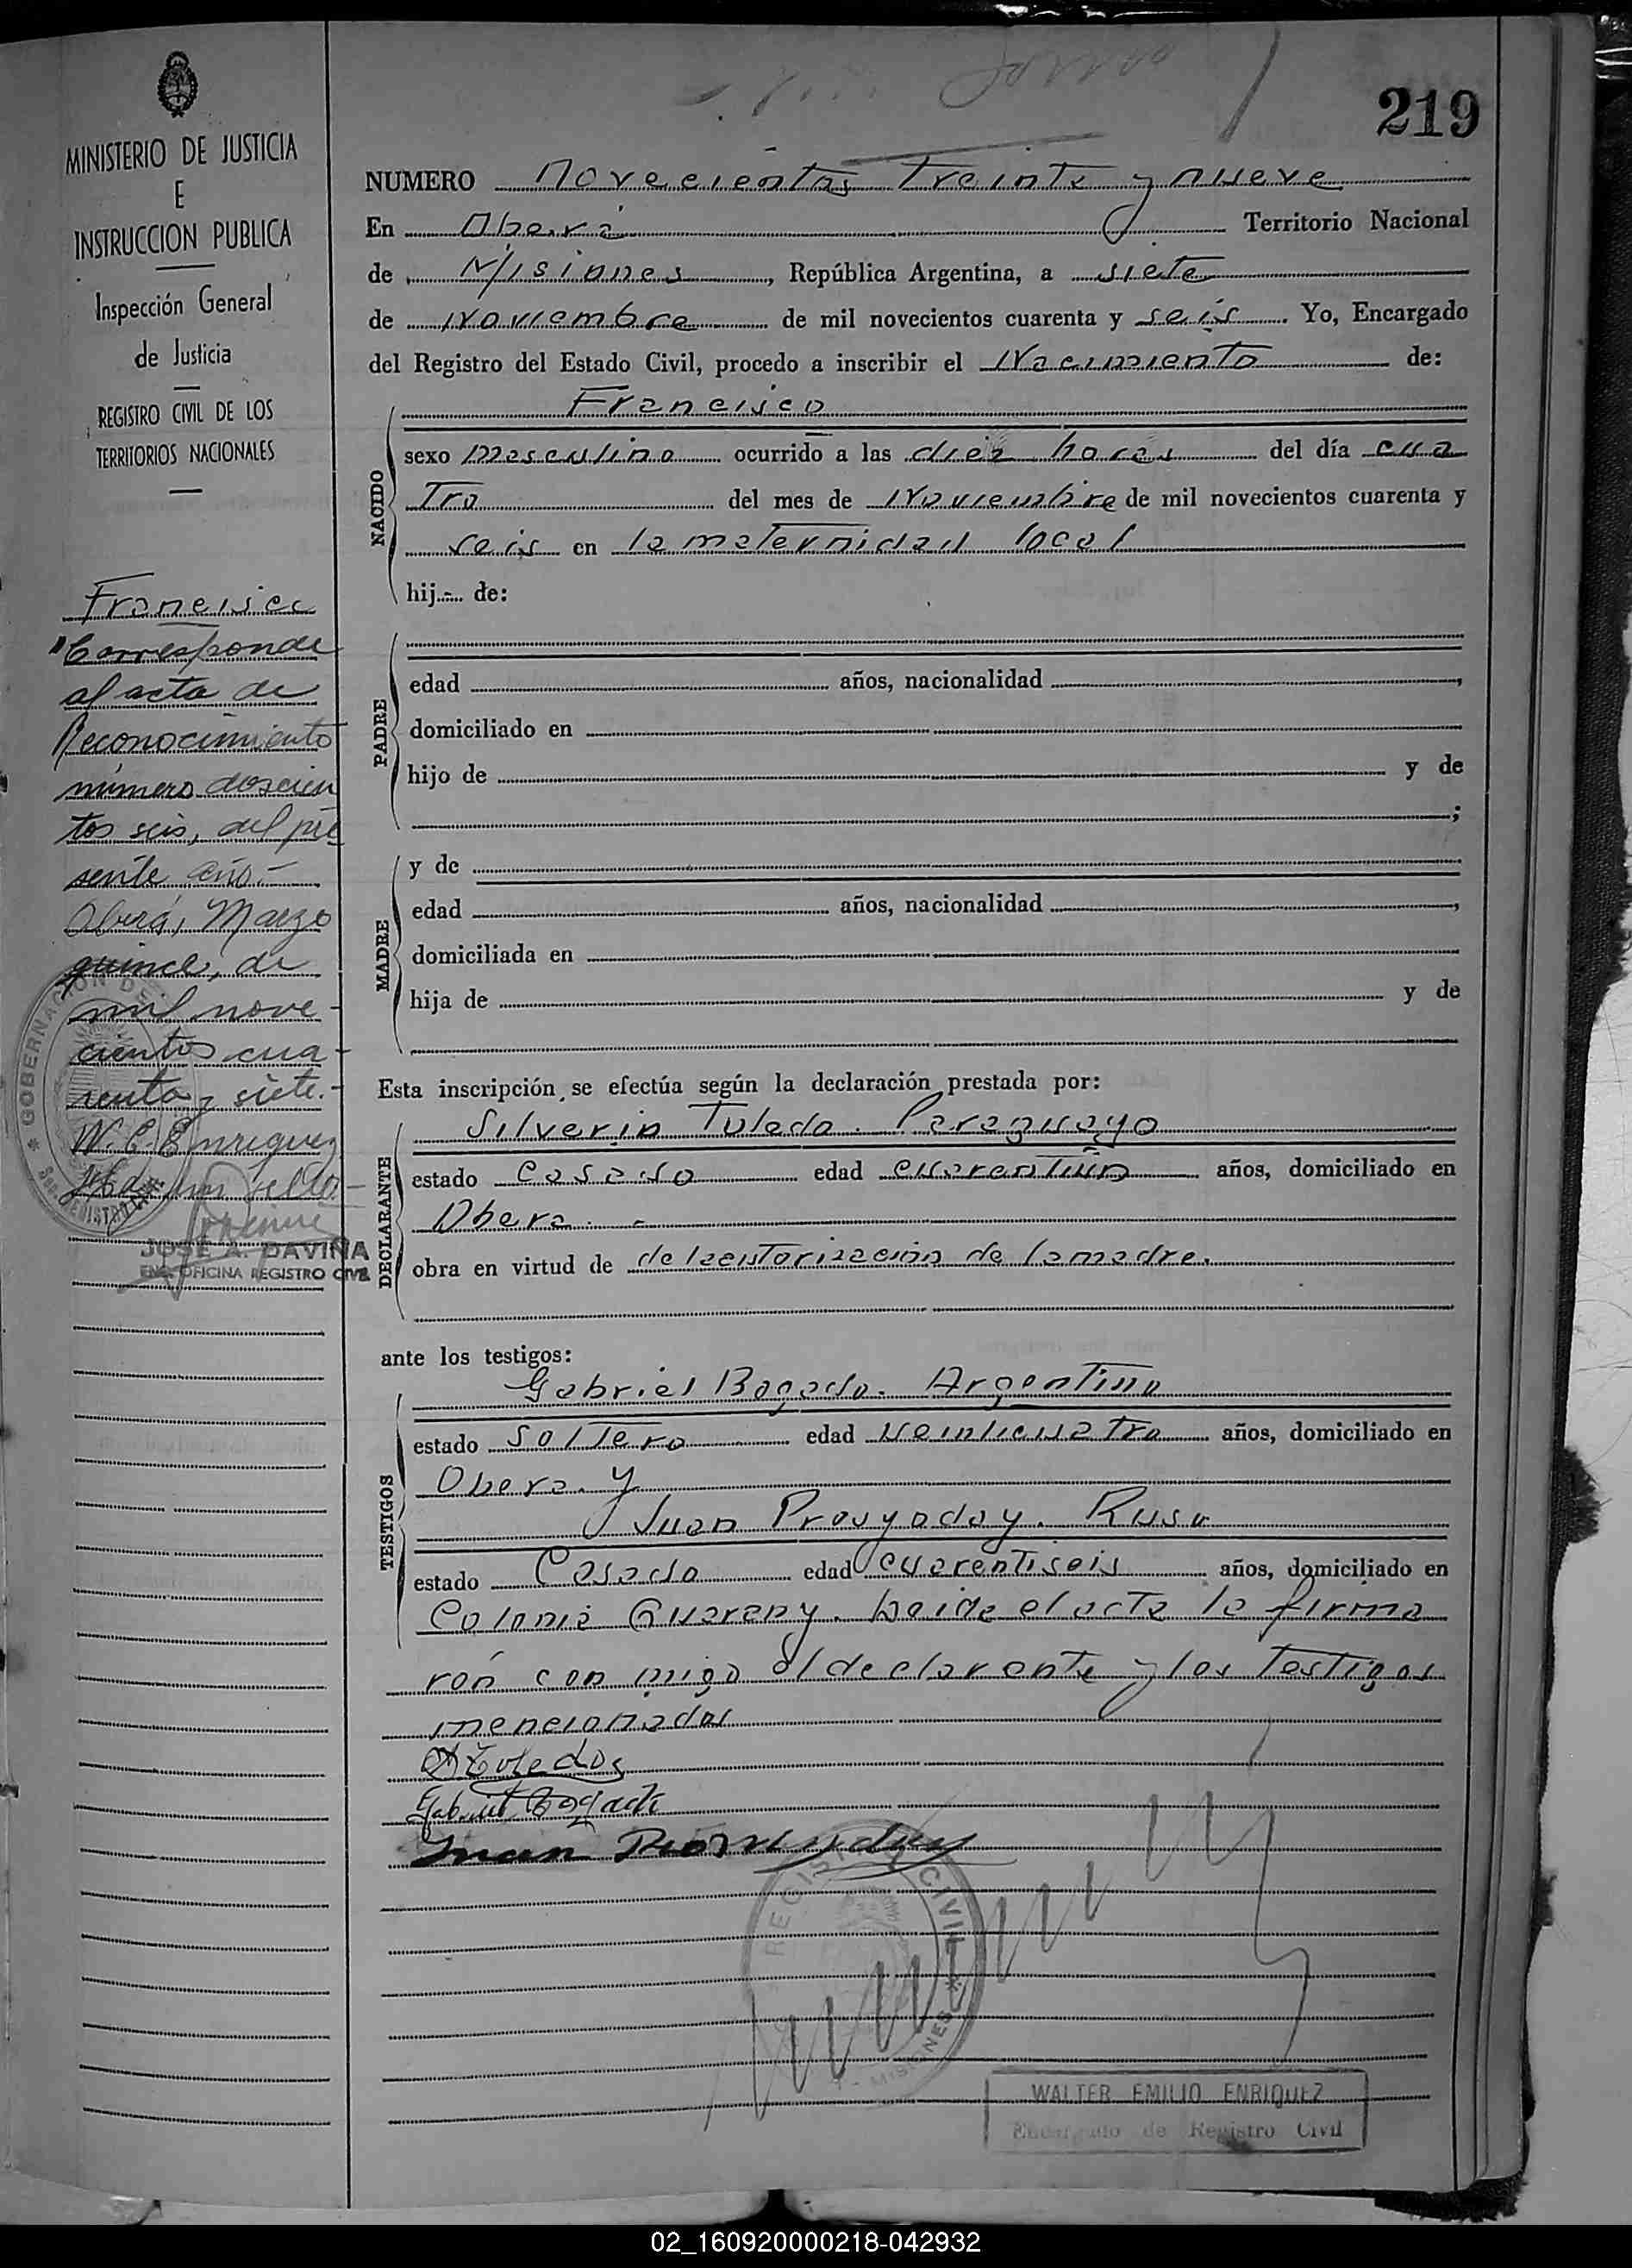 219
MINISTERIO DE JUSTICIA
E
INSTRUCCION PUBLICA
Inspección General
de Justicia
REGISTRO CIVIL DE LOS
TERRITORIOS NACIONALES
Francisco
Corresponde
al acta de
Reconocimiento
número doscien
tos seis, del pre
sente año.-
Oberá, Marzo
quince, de
mil nove-
cientos cua-
renta y siete.-
W. E. Enriquez
Hay un sello-
GOBERNACION DE
REGISTRO CIVIL
JOSE A. DAVIÑA
ENC. OFICINA REGISTRO CIVIL
NUMERO Novecientos Treinta y nueve
En Oberá Territorio Nacional
de Misiones, República Argentina, a siete
de Noviembre de mil novecientos cuarenta y seis. Yo, Encargado
del Registro del Estado Civil, procedo a inscribir el Nacimiento de:
NACIDO
Francisco
sexo masculino ocurrido a las diez horas del día cua
tro del mes de Noviembre de mil novecientos cuarenta y
seis en la maternidad local
hij.-.. de:
PADRE
edad años, nacionalidad ,
domiciliado en
hijo de y de
;
MADRE
y de
edad años, nacionalidad ,
domiciliada en
hija de y de
Esta inscripción se efectúa según la declaración prestada por:
DECLARANTE
Silverio Toledo. Paraguayo
estado Casado edad cuarentiún años, domiciliado en
Obera. -
obra en virtud de de la autorización de la madre.
ante los testigos:
TESTIGOS
Gabriel Bogado. Argentino
estado Soltero edad veinticuatro años, domiciliado en
Obera. y
Juan Provyaday. Ruso
estado Casado edad cuarentiseis años, domiciliado en
Colonia Guarany. Leida el acta la firma
ron con migo el declarante y los Testigos
mencionados
Toledos
Gabriel Bogado
Juan
REGISTRO CIVIL
MISIONES
WALTER EMILIO ENRIQUEZ
Encargado de Registro Civil
02_160920000218-042932